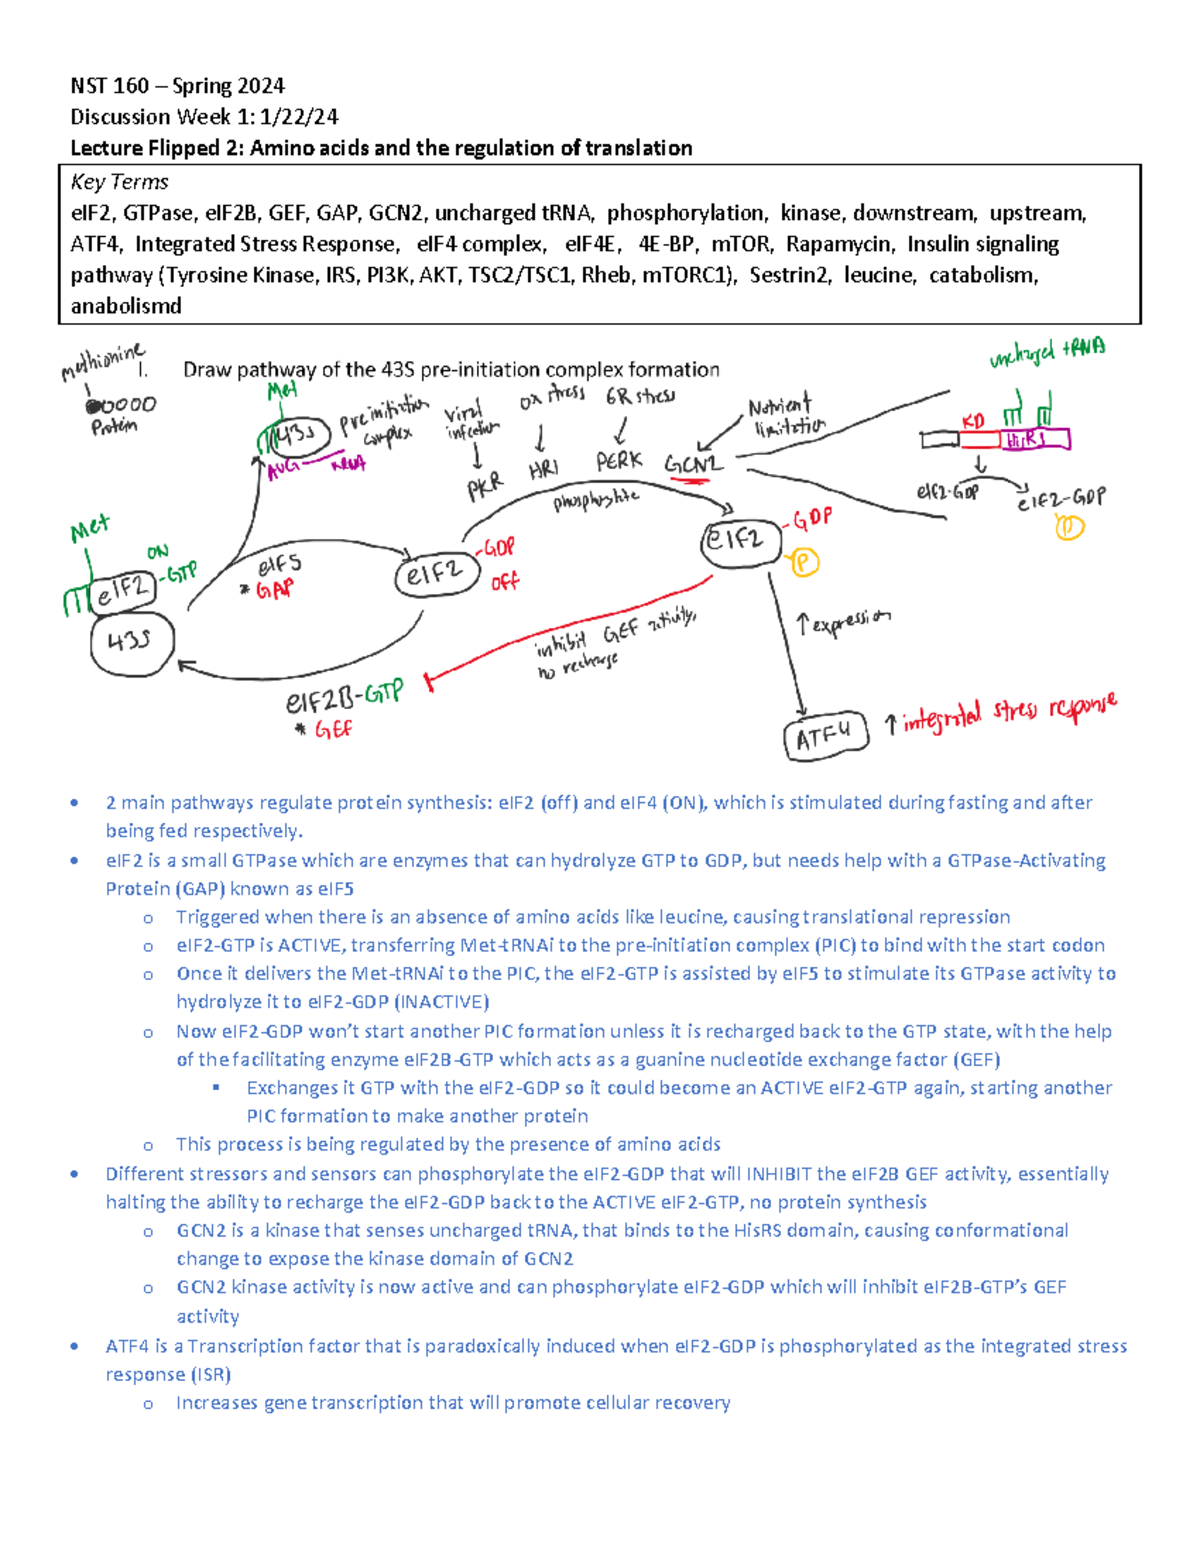 NST 160 – Spring 2024
Discussion Week 1: 1/22/24
Lecture Flipped 2: Amino acids and the regulation of translation
Key Terms
eIF2, GTPase, eIF2B, GEF, GAP, GCN2, uncharged tRNA, phosphorylation, kinase, downstream, upstream,
ATF4, Integrated Stress Response, eIF4 complex, eIF4E, 4E-BP, mTOR, Rapamycin, Insulin signaling
pathway (Tyrosine Kinase, IRS, PI3K, AKT, TSC2/TSC1, Rheb, mTORC1), Sestrin2, leucine, catabolism,
anabolismd
I. Draw pathway of the 43S pre-initiation complex formation
methionine
Protein
Met
43S
preinitiation
complex
AUG
mRNA
viral
infection
PKR
ox stress
HRI
ER stress
PERK
Nutrient
limitation
GCN2
uncharged tRNA
KD
HisRS
eIF2-GDP
eIF2-GDP
P
phosphorylate
Met
ON
eIF2
-GTP
43S
eIF5
* GAP
eIF2
-GDP
OFF
eIF2
-GDP
P
inhibit GEF activity,
no recharge
↑ expression
eIF2B-GTP
* GEF
ATF4
↑ integrated stress response
• 2 main pathways regulate protein synthesis: eIF2 (off) and eIF4 (ON), which is stimulated during fasting and after
being fed respectively.
• eIF2 is a small GTPase which are enzymes that can hydrolyze GTP to GDP, but needs help with a GTPase-Activating
Protein (GAP) known as eIF5
o Triggered when there is an absence of amino acids like leucine, causing translational repression
o eIF2-GTP is ACTIVE, transferring Met-tRNAi to the pre-initiation complex (PIC) to bind with the start codon
o Once it delivers the Met-tRNAi to the PIC, the eIF2-GTP is assisted by eIF5 to stimulate its GTPase activity to
hydrolyze it to eIF2-GDP (INACTIVE)
o Now eIF2-GDP won't start another PIC formation unless it is recharged back to the GTP state, with the help
of the facilitating enzyme eIF2B-GTP which acts as a guanine nucleotide exchange factor (GEF)
▪ Exchanges it GTP with the eIF2-GDP so it could become an ACTIVE eIF2-GTP again, starting another
PIC formation to make another protein
o This process is being regulated by the presence of amino acids
• Different stressors and sensors can phosphorylate the eIF2-GDP that will INHIBIT the eIF2B GEF activity, essentially
halting the ability to recharge the eIF2-GDP back to the ACTIVE eIF2-GTP, no protein synthesis
o GCN2 is a kinase that senses uncharged tRNA, that binds to the HisRS domain, causing conformational
change to expose the kinase domain of GCN2
o GCN2 kinase activity is now active and can phosphorylate eIF2-GDP which will inhibit eIF2B-GTP's GEF
activity
• ATF4 is a Transcription factor that is paradoxically induced when eIF2-GDP is phosphorylated as the integrated stress
response (ISR)
o Increases gene transcription that will promote cellular recovery